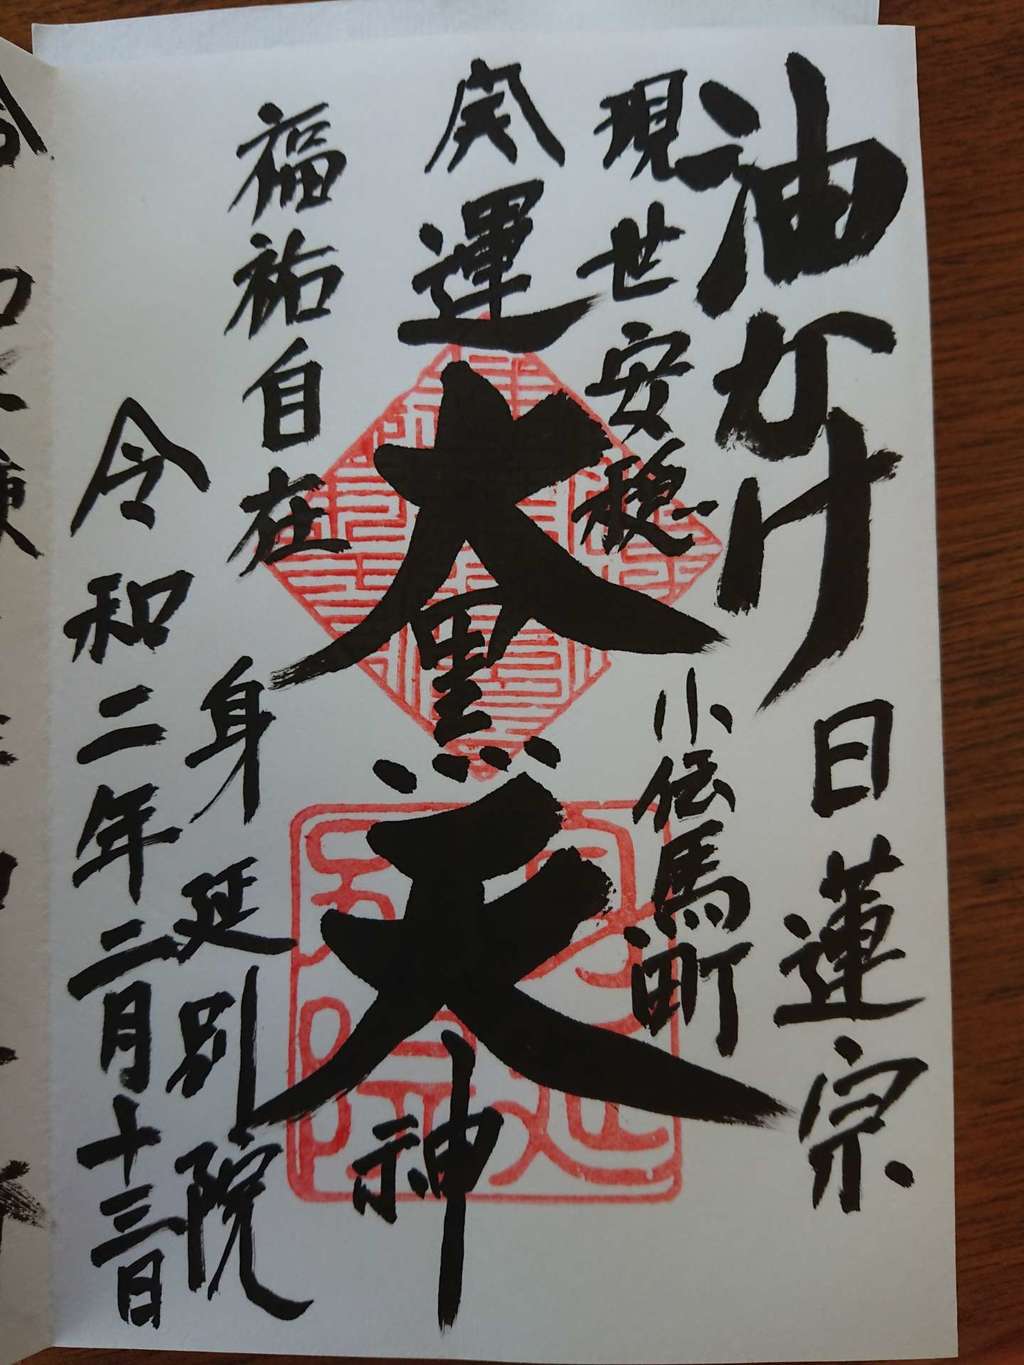 油かけ
日蓮宗
現世安穏
小伝馬町
開運
大黒天神
福祐自在
身延別院
令和二年二月十三日